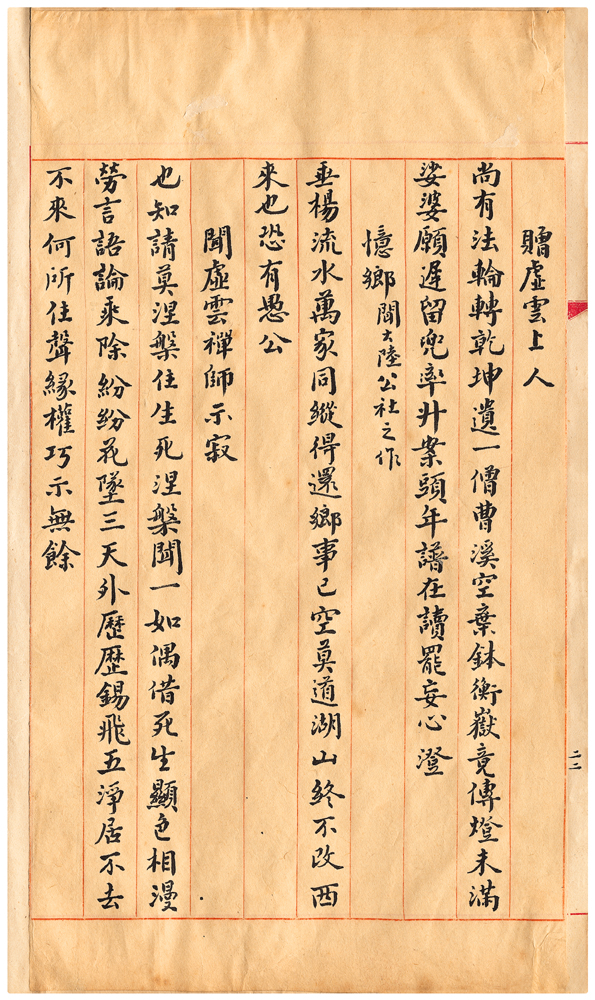 贈虛雲上人
尚有法輪轉乾坤遺一僧曹溪空棄鉢衡嶽竟傳燈未滿
娑婆願遲留兜率升案頭年譜在讀罷妄心澄
憶鄉 聞大陸公社之作
垂楊流水萬家同縱得還鄉事已空莫道湖山終不改西
來也恐有愚公
聞虛雲禪師示寂
也知請莫涅槃住生死涅槃聞一如偶借死生顯色相漫
勞言語論乘除紛紛花墜三天外歷歷錫飛五淨居不去
不來何所住聲緣權巧示無餘
二二